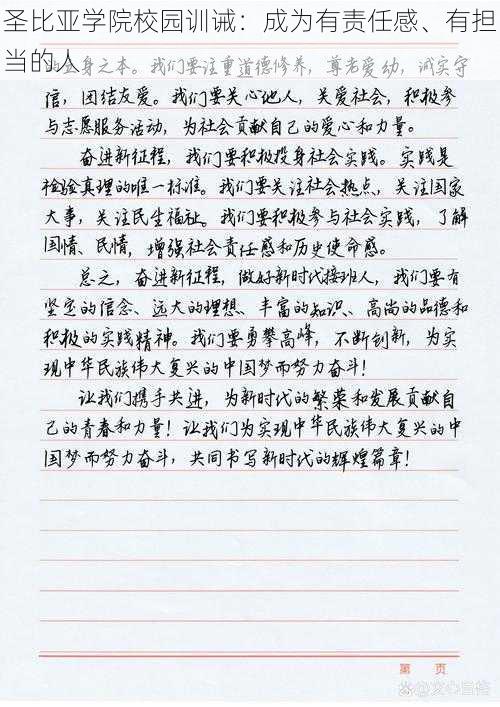 圣比亚学院校园训诫：成为有责任感、有担
当的人
立身之本。我们要注重道德修养，尊老爱幼，诚实守
信，团结友爱。我们要关心他人，关爱社会，积极参
与志愿服务活动，为社会贡献自己的爱心和力量。
奋进新征程，我们要积极投身社会实践。实践是
检验真理的唯一标准。我们要关注社会热点，关注国家
大事，关注民生福祉。我们要积极参与社会实践，了解
国情、民情，增强社会责任感和历史使命感。
总之，奋进新征程，做好新时代接班人，我们要有
坚定的信念、远大的理想、丰富的知识、高尚的品德和
积极的实践精神。我们要勇攀高峰，不断创新，为实
现中华民族伟大复兴的中国梦而努力奋斗！
让我们携手共进，为新时代的繁荣和发展贡献自
己的青春和力量！让我们为实现中华民族伟大复兴的中
国梦而努力奋斗，共同书写新时代的辉煌篇章！
第 页